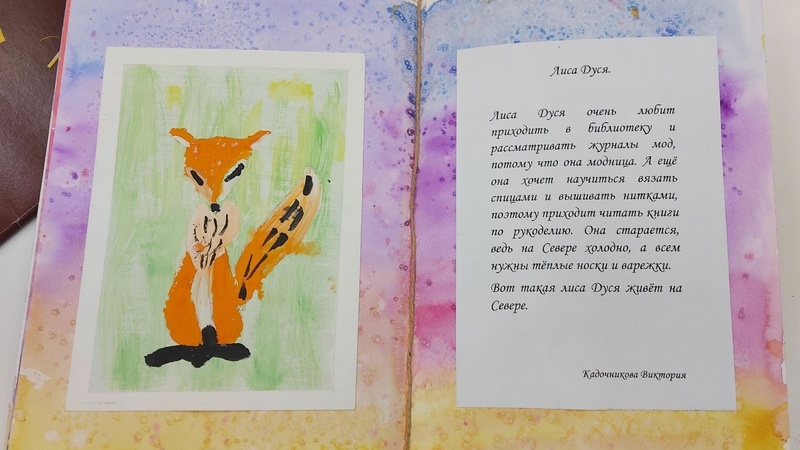 Лиса Дуся.
Лиса Дуся очень любит
приходить в библиотеку и
рассматривать журналы мод,
потому что она модница. А ещё
она хочет научиться вязать
спицами и вышивать нитками,
поэтому приходит читать книги
по рукоделию. Она старается,
ведь на Севере холодно, а всем
нужны тёплые носки и варежки.
Вот такая лиса Дуся живёт на
Севере.
Кадочникова Виктория